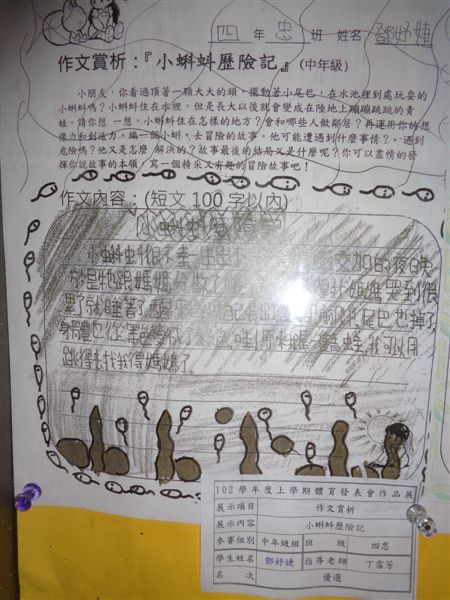 四 年 忠 班 姓名 鄧妤婕
作文賞析：『小蝌蚪歷險記』(中年級)
小朋友，你看過頂著一顆大大的頭，擺動著小尾巴，在水池裡到處玩耍的
小蝌蚪嗎？小蝌蚪住在水裡，但是長大以後就會變成在陸地上蹦蹦跳跳的青
蛙。請你想一想，小蝌蚪住在怎樣的地方？會和哪些人做鄰居？再運用你的想
像力和創造力，編一個小蝌蚪去冒險的故事。他可能遭遇到什麼事情？遇到
危險嗎？他又是怎麼 解決的？故事最後的結局又是什麼呢？你可以盡情的發
揮你說故事的本領，寫一個精采又有趣的冒險故事吧！
作文內容：(短文 100 字以內)
小蝌蚪歷險記
小蝌蚪很不幸 交加的夜晚
於是牠跟媽媽分散了 找媽媽哭到很
累了就睡著了 尾巴也掉了
身體也從黑色變成了綠色 哇！原來我是 青蛙，我可以用
跳得去找我得媽媽了。
102 學年度上學期體育發表會作品展
展示項目 作文賞析
展示內容 小蝌蚪歷險記
參賽組別 中年級組 班 級 四忠
學生姓名 鄧妤婕 指導老師 丁雪芳
名 次 優選